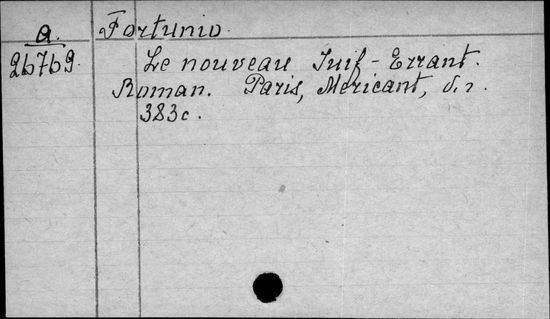 a. Fortunio.
26769. Le nouveau Juif-Errant.
Roman. Paris, Mericant, d. г.
383 c.